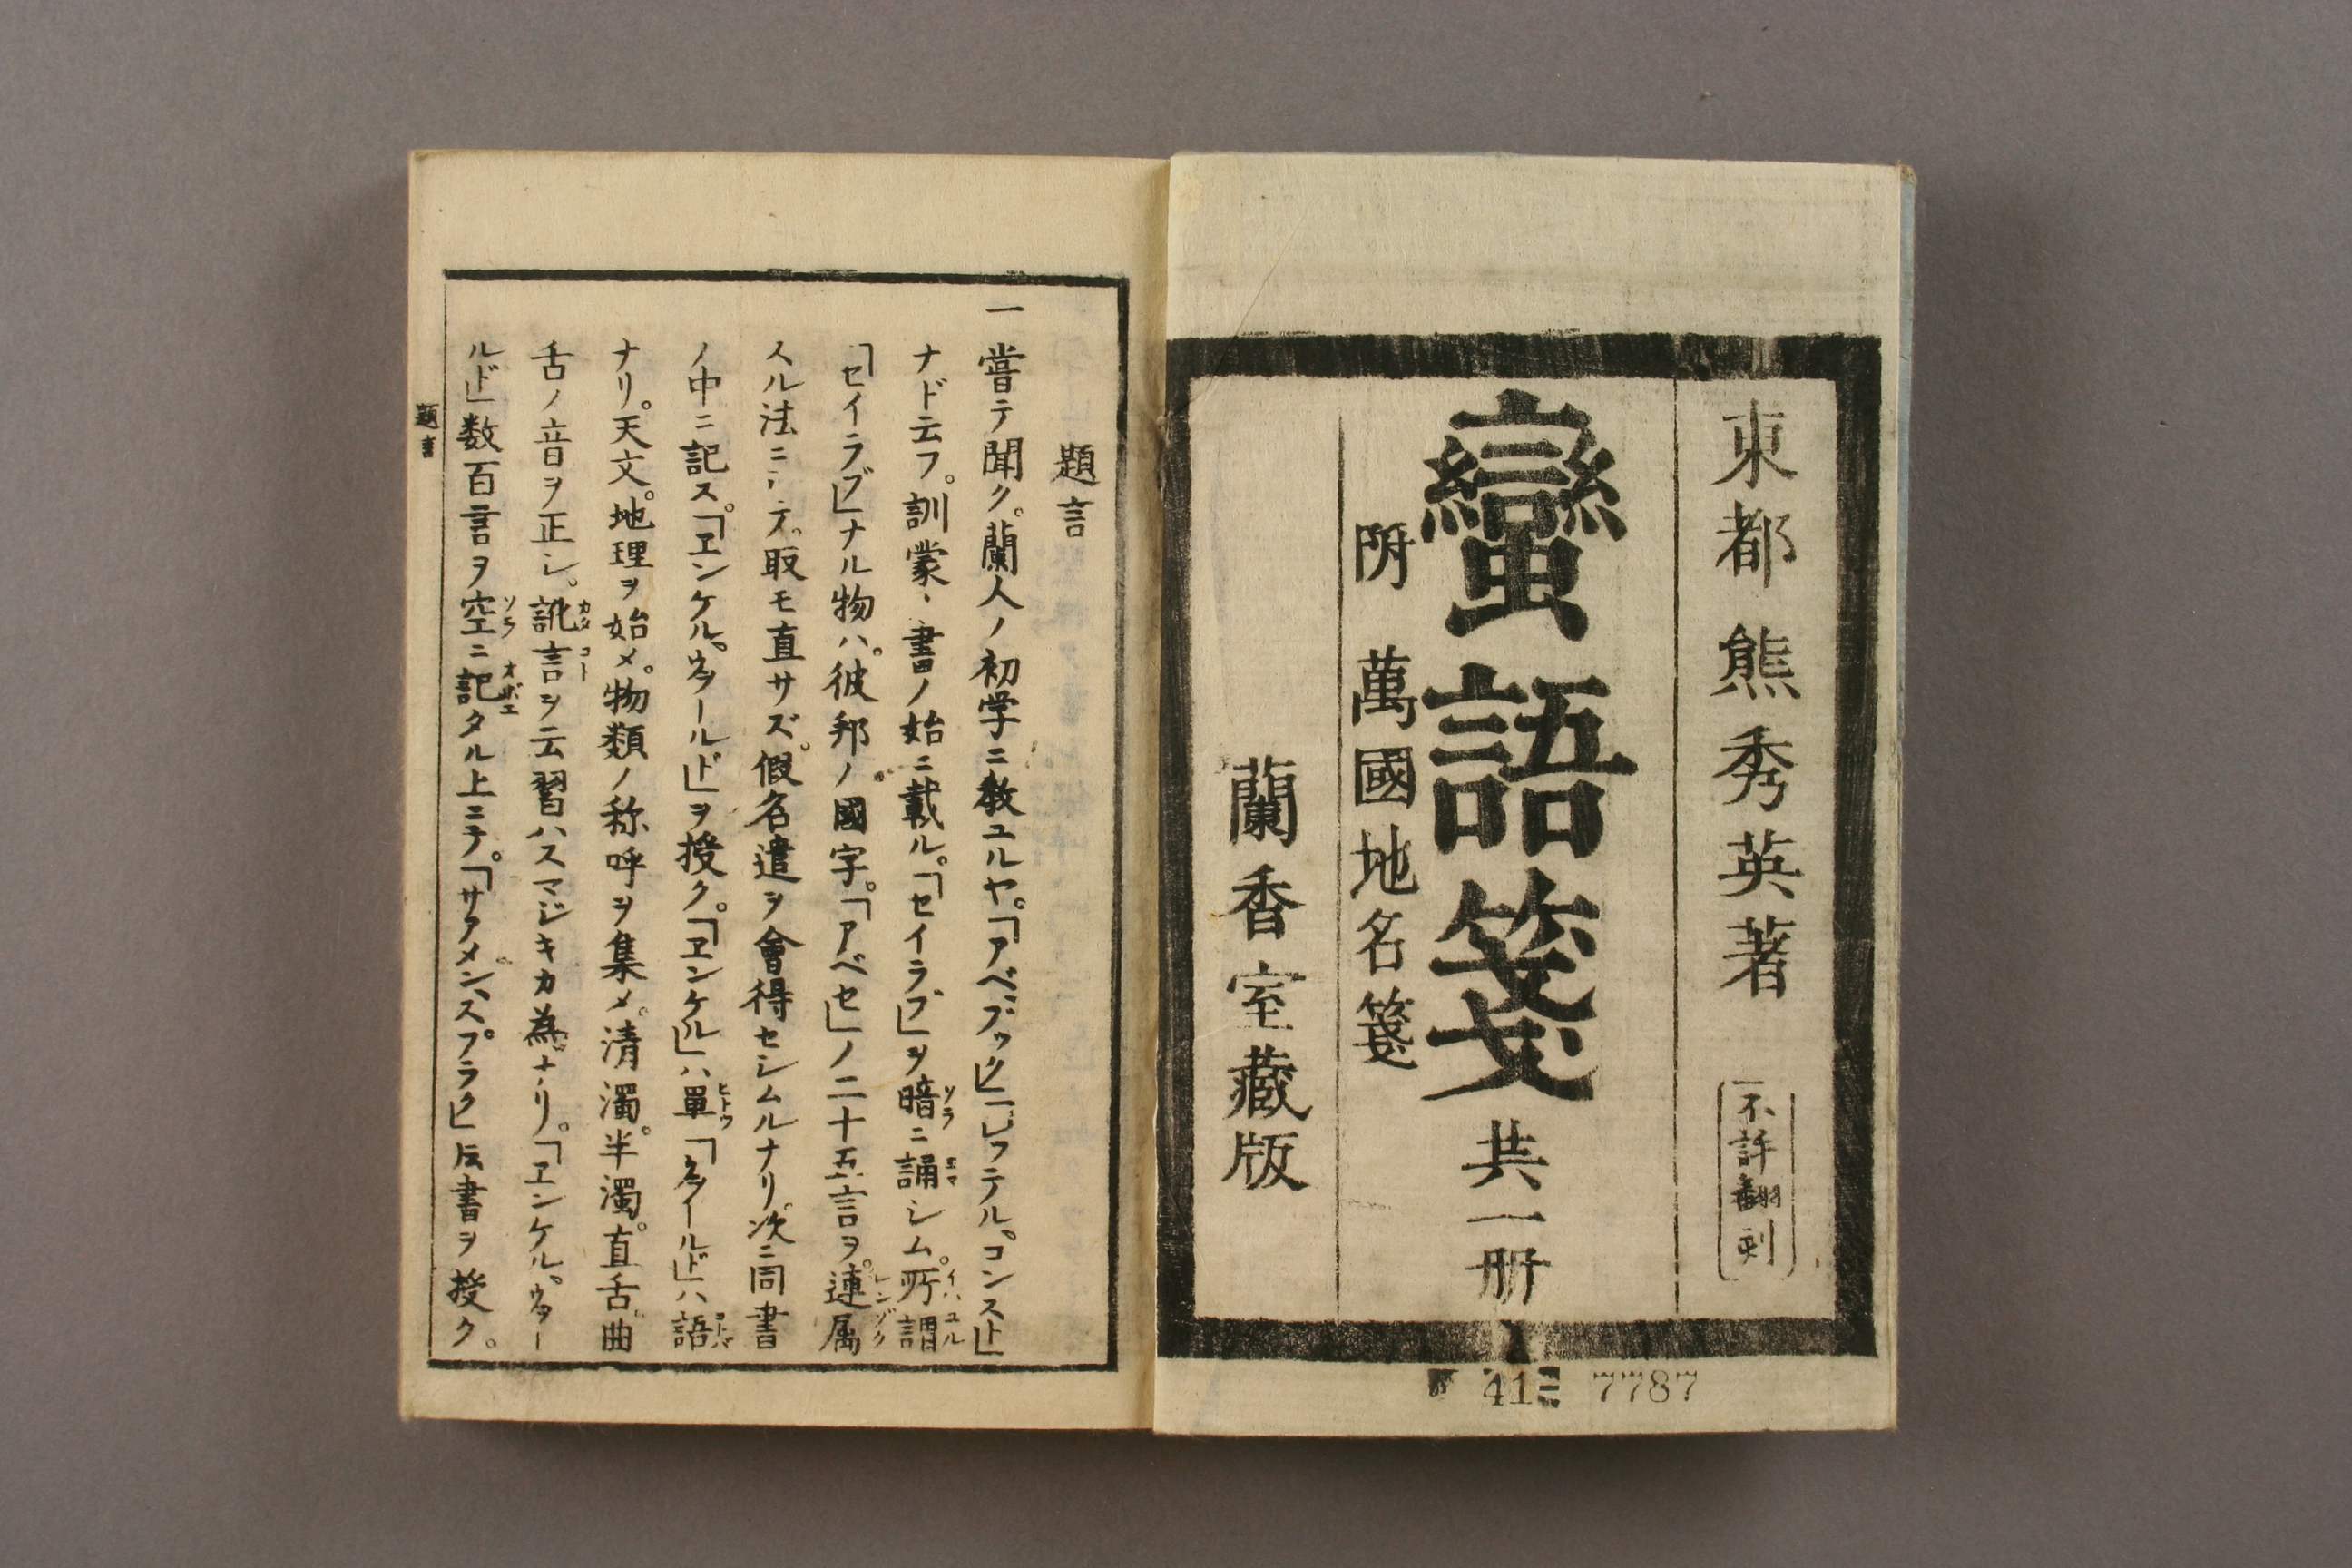 東都 熊秀英著
不許翻刻
蠻語箋 共一册
附 萬國地名箋
蘭香室藏版
41 7787
題言
一 嘗テ聞ク。蘭人ノ初学ニ教ユルヤ。「アベブック」「レッテル。コンスト」
ナド云フ。訓蒙ノ書ノ始ニ載ル。「セイラブ」ヲ暗ニ誦シム。所謂
「セイラブ」ナル物ハ。彼邦ノ國字。「アベセ」ノ二十五言ヲ。連属
スル法ニテ。取モ直サズ。假名遣ヲ會得セシムルナリ。次ニ同書
ノ中ニ記ス。「ヱンケル。ウヲールド」ヲ授ク。「ヱンケル」ハ單「ウヲールド」ハ語
ナリ。天文。地理ヲ始メ。物類ノ称呼ヲ集メ。清濁。半濁。直舌。曲
舌ノ音ヲ正シ。訛言ヲ云習ハスマジキカ為ナリ。「ヱンケル。ウヲー
ルド」数百言ヲ空ニ記タル上ニテ。「サアメン、スプラク」ト云書ヲ授ク。
題言